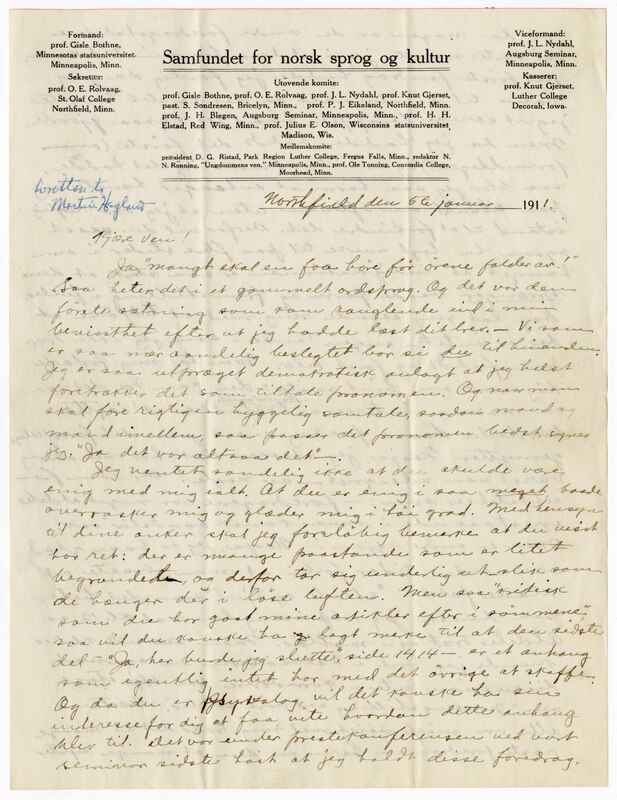 Formand:
prof. Gisle Bothne,
Minnesotas statsuniversitet.
Minneapolis, Minn.
Sekretær:
prof. O. E. Rolvaag,
St. Olaf College
Northfield, Minn.
Samfundet for norsk sprog og kultur
Utövende komite:
prof. Gisle Bothne, prof. O. E. Rolvaag, prof. J. L. Nydahl, prof. Knut Gjerset,
past. S. Sondresen, Bricelyn, Minn., prof. P. J. Eikeland, Northfield, Minn.
prof. J. H. Blegen, Augsburg Seminar, Minneapolis, Minn., prof. H. H.
Elstad, Red Wing, Minn., prof. Julius E. Olson, Wisconsins statsuniversitet,
Madison, Wis.
Medlemskomite:
præsident D. G. Ristad, Park Region Luther College, Fergus Falls, Minn., redaktör N.
N. Rönning, "Ungdommens ven," Minneapolis, Minn., prof. Ole Tonning, Concordia College,
Moorhead, Minn.
Viceformand:
prof. J. L. Nydahl,
Augsburg Seminar,
Minneapolis, Minn.
Kasserer:
prof. Knut Gjerset,
Luther College
Decorah, Iowa.
written to
Martin Hegland
Northfield den 6te januar 1911.
Kjære ven!
Ja, "mangt skal en faa höre för örene falder av!"
Saa heter det i et gammelt ordsprog. Og det var den
förste sætning som kom ranglende ind i min
bevissthet efter at jeg hadde læst dit brev. — Vi som
er saa nær aandelig beslegtet bör si du til hinanden.
Jeg er saa utpræget demokratisk anlagt at jeg helst
foretrækker det som tiltale pronomen. Og naar man
skal före rigtigen hyggelig samtale, saadan mand og
mand imellem, saa passer det pronomen bedst, synes
jeg. "Ja det var altsaa det" —
Jeg ventet sandelig ikke at du skulde være
enig med mig i alt. At du er enig i saa meget baade
overrasker mig og glæder mig i höi grad. Med hensyn
til dine anker skal jeg forelöbig bemerke at du visst
har ret: der er mange paastande som er litet
begrundet, og derfor tar sig underlig ut slik som
de hænger der i löse luften. Men saa "kritisk
som du har gaat mine artikler efter i sömmene",
saa vil du kanske ha lagt merke til at den sidste
del — "Ja, her burde jeg slutte", side 1414 — er et anhang
som egentlig intet har med det övrige at skaffe.
Og da du er psykolog vil det kanske ha sin
interesse for dig at faa vite hvordan dette anhang
blev til. Det var under prestekonferensen ved vort
seminar sidste höst at jeg holdt disse foredrag.